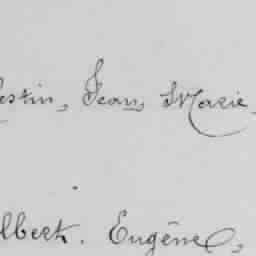 estin, Jean, Marie
lbert. Eugène,